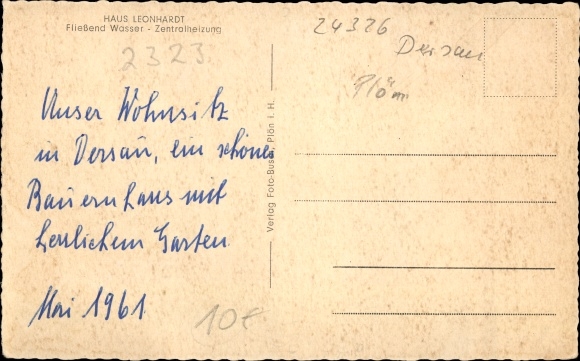 HAUS LEONHARDT
Fließend Wasser - Zentralheizung
2323
24326
Dersau
Plön
Unser Wohnsitz
in Dersau, ein schönes
Bauernhaus mit
herrlichem Garten
Mai 1961
10€
Verlag Foto-Busch, Plön i. H.